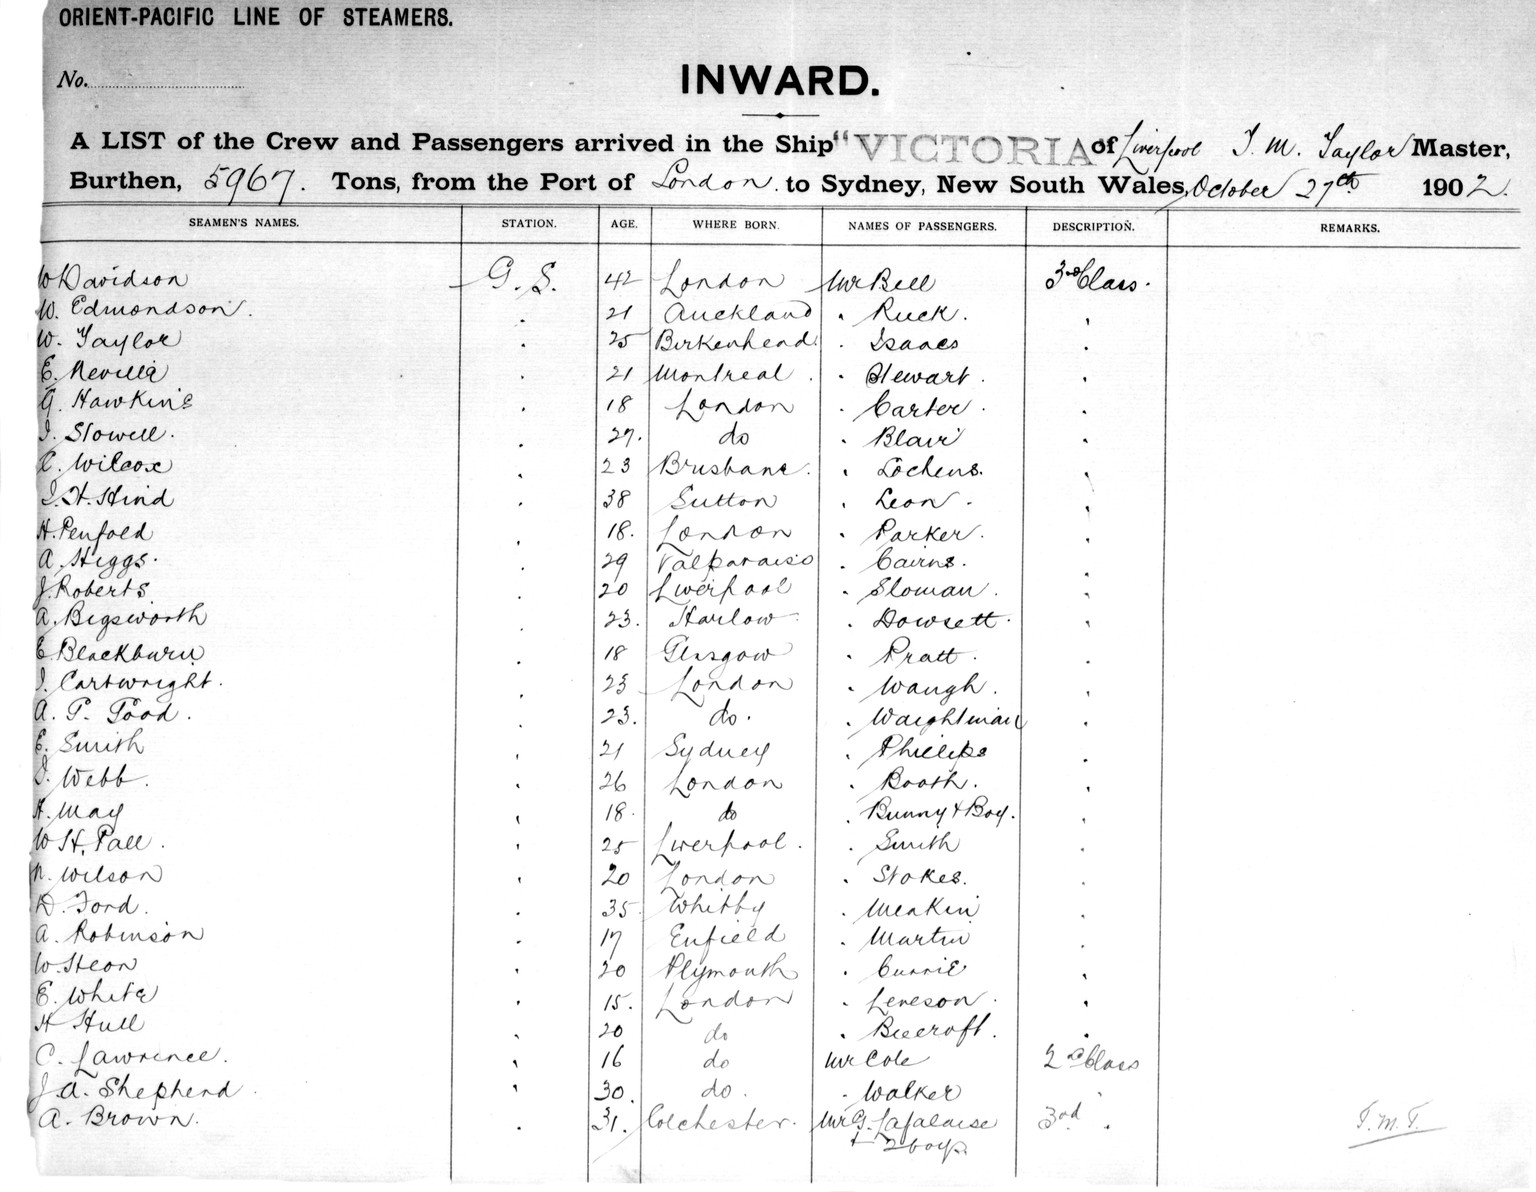 ORIENT-PACIFIC LINE OF STEAMERS.
No.
INWARD.
A LIST of the Crew and Passengers arrived in the Ship "VICTORIA of Liverpool T. M. Taylor Master,
Burthen, 5967. Tons, from the Port of London. to Sydney, New South Wales, October 27th 1902.
SEAMEN'S NAMES. STATION. AGE. WHERE BORN. NAMES OF PASSENGERS. DESCRIPTION. REMARKS.
W Davidson G. S. 42 London Mr Bell 3rd Class.
W. Edmondson. " 21 Auckland " Ruck. "
W. Taylor " 25 Birkenhead. " Isaacs "
E. Neville " 21 Montreal. " Stewart. "
G. Hawkins " 18 London " Carter. "
Stowell. " 27. do " Blair "
C. Wilcox " 23 Brisbane. " Lochens. "
H. Hind " 38 Sutton " Leon. "
H. Penfold " 18. London " Parker. "
A. Higgs. " 29 Valparaiso " Cairns. "
J. Roberts " 20 Liverpool " Sloman. "
A. Bigsworth " 23. Harlow " Dowsett. "
E. Blackburn " 18 Glasgow " Pratt. "
Cartwright. " 23 London " Waugh. "
A. T. Todd. " 23. do. " Waightman "
E. Smith " 21 Sydney " Phillips "
Webb. " 26 London " Booth. "
H. May " 18. do " Bunny & Boy. "
W H. Pall. " 25 Liverpool. " Smith "
Wilson " 20 London " Stokes. "
D. Ford. " 35 Whitby " Meakin "
A. Robinson " 17 Enfield " Martin "
W. Heon " 20 Plymouth " Currie "
E. White " 15. London " Leveson. "
H Hull " 20 do " Beecroft. "
C. Lawrence. " 16 do Mr Cole 2nd Class
J. A. Shepherd. " 30. do. " Walker "
A. Brown. " 31. Colchester. Mr G. Lafalaise 3rd "
+ 2 boys.
T. M. T.